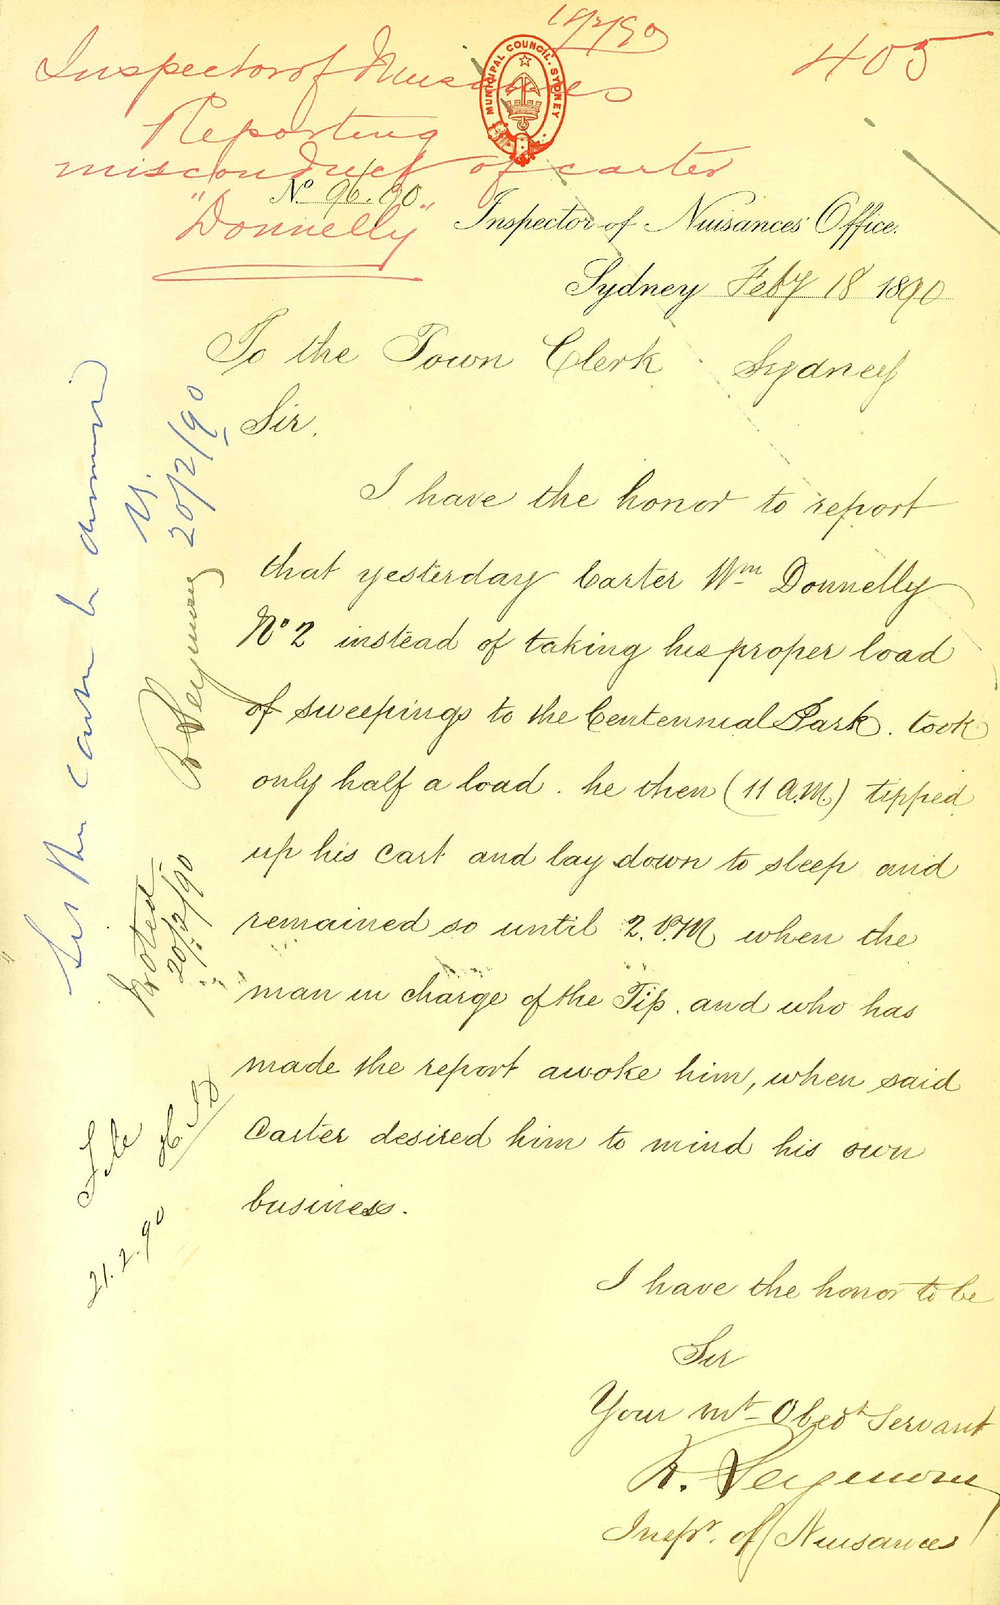 19/2/90
405
Inspector of Nuisances
Reporting
misconduct of carter
"Donnelly"
MUNICIPAL COUNCIL. SYDNEY
No 96.90.
Inspector of Nuisances' Office.
Sydney Feby 18 1890
To the Town Clerk Sydney
Sir.
I have the honor to report
that yesterday Carter Wm Donnelly
No 2 instead of taking his proper load
of sweepings to the Centennial Park. took
only half a load. he then (11 A.M) tipped
up his cart and lay down to sleep and
remained so until 2. P.M when the
man in charge of the Tip. and who has
made the report awoke him, when said
Carter desired him to mind his own
business.
I have the honor to be
Sir
Your mt Obedt Servant
R. Seymour
Inspr. of Nuisances
Let this carter be dismissed
20/2/90
Noted
20/2/90
R Seymour
File
21.2.90